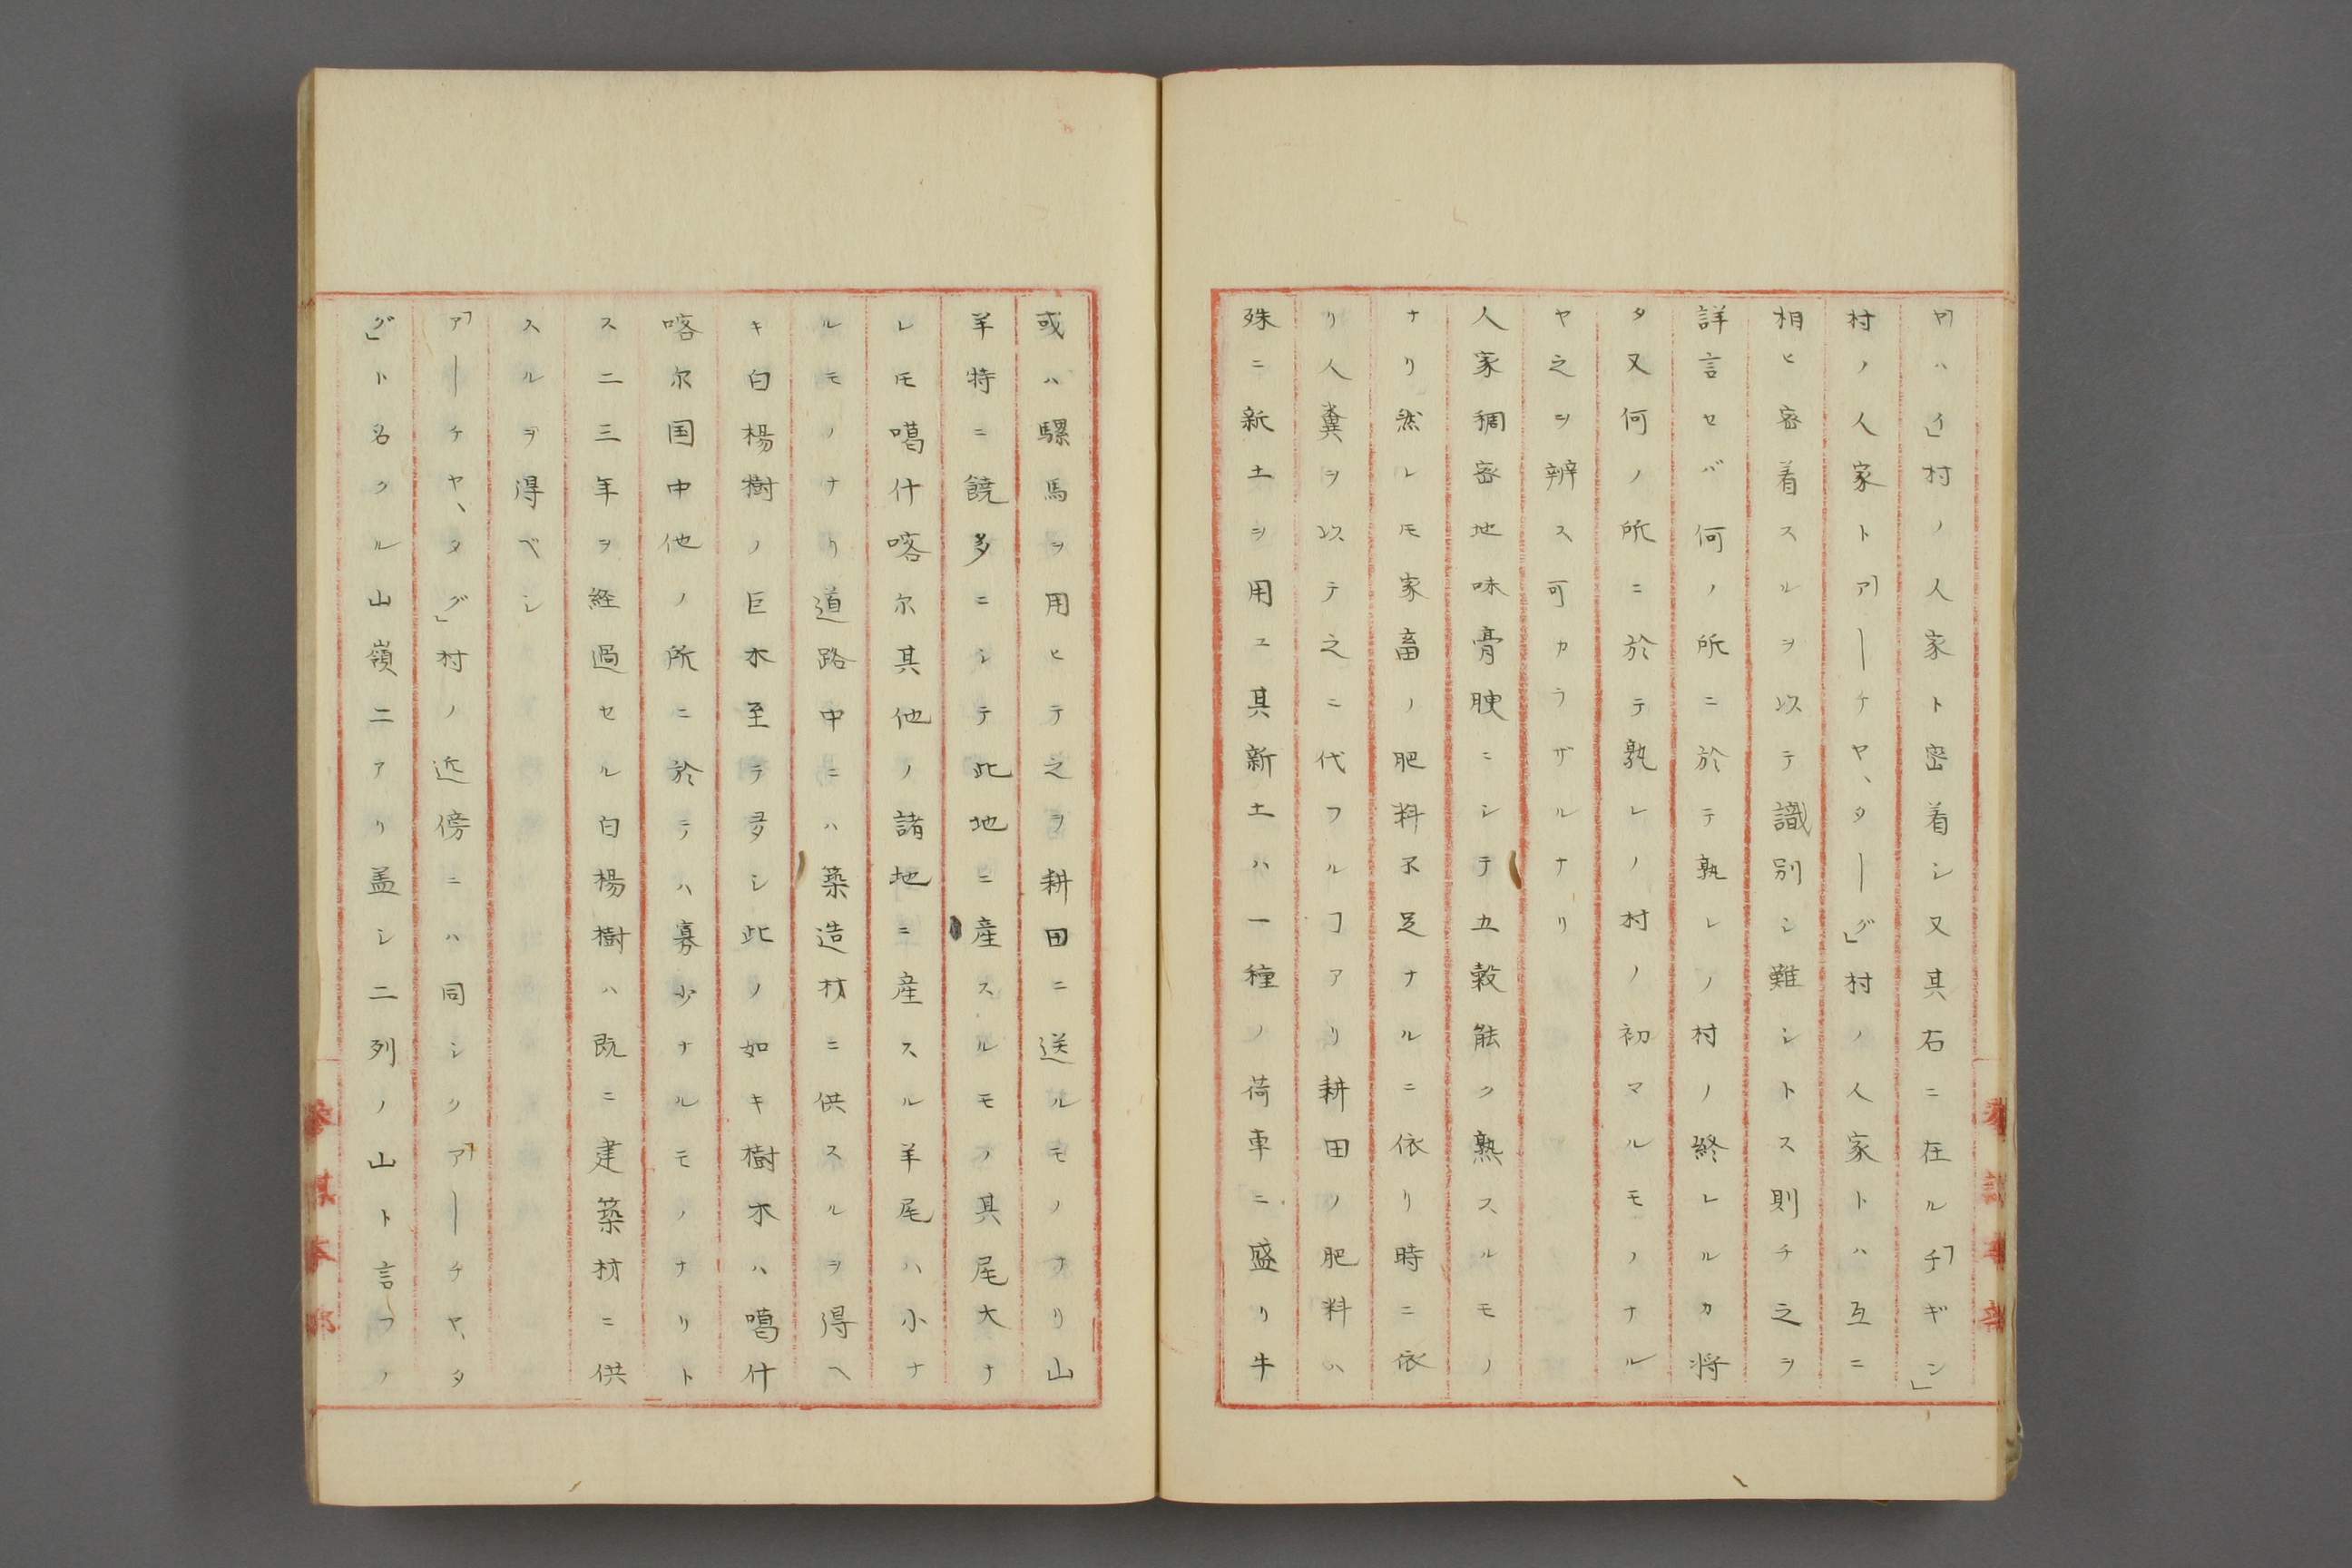 「ヤハイ」村ノ人家ト密着シ又其右ニ在ル「チギン」
村ノ人家ト「アーチヤ、ターグ」村ノ人家トハ互ニ
相ヒ密着スルヲ以テ識別シ難シトス則チ之ヲ
詳言セバ何ノ所ニ於テ孰レノ村ノ終レルカ将
タ又何ノ所ニ於テ孰レノ村ノ初マルモノナル
ヤ之ヲ辨ス可カラザルナリ
人家稠密地味膏腴ニシテ五穀能ク熟スルモノ
ナリ然レモ家畜ノ肥料不足ナルニ依リ時ニ依
リ人糞ヲ以テ之ニ代フルヿアリ耕田ノ肥料ハ
殊ニ新土ヲ用ユ其新土ハ一種ノ荷車ニ盛リ牛
或ハ騾馬ヲ用ヒテ之ヲ耕田ニ送ルモノナリ山
羊特ニ饒多ニシテ此地ニ産スルモノ其尾大ナ
レモ噶什喀尓其他ノ諸地ニ産スル羊尾ハ小ナ
ルモノナリ道路中ニハ築造材ニ供スルヲ得ヘ
キ白楊樹ノ巨木至テ多シ此ノ如キ樹木ハ噶什
喀尓国中他ノ所ニ於テハ寡少ナルモノナリト
ス二三年ヲ経過セル白楊樹ハ既ニ建築材ニ供
スルヲ得ベシ
「アーチヤ、タグ」村ノ近傍ニハ同シク「アーチヤ、タ
グ」ト名クル山嶺ニアリ盖シ二列ノ山ト言フノ
参謀本部